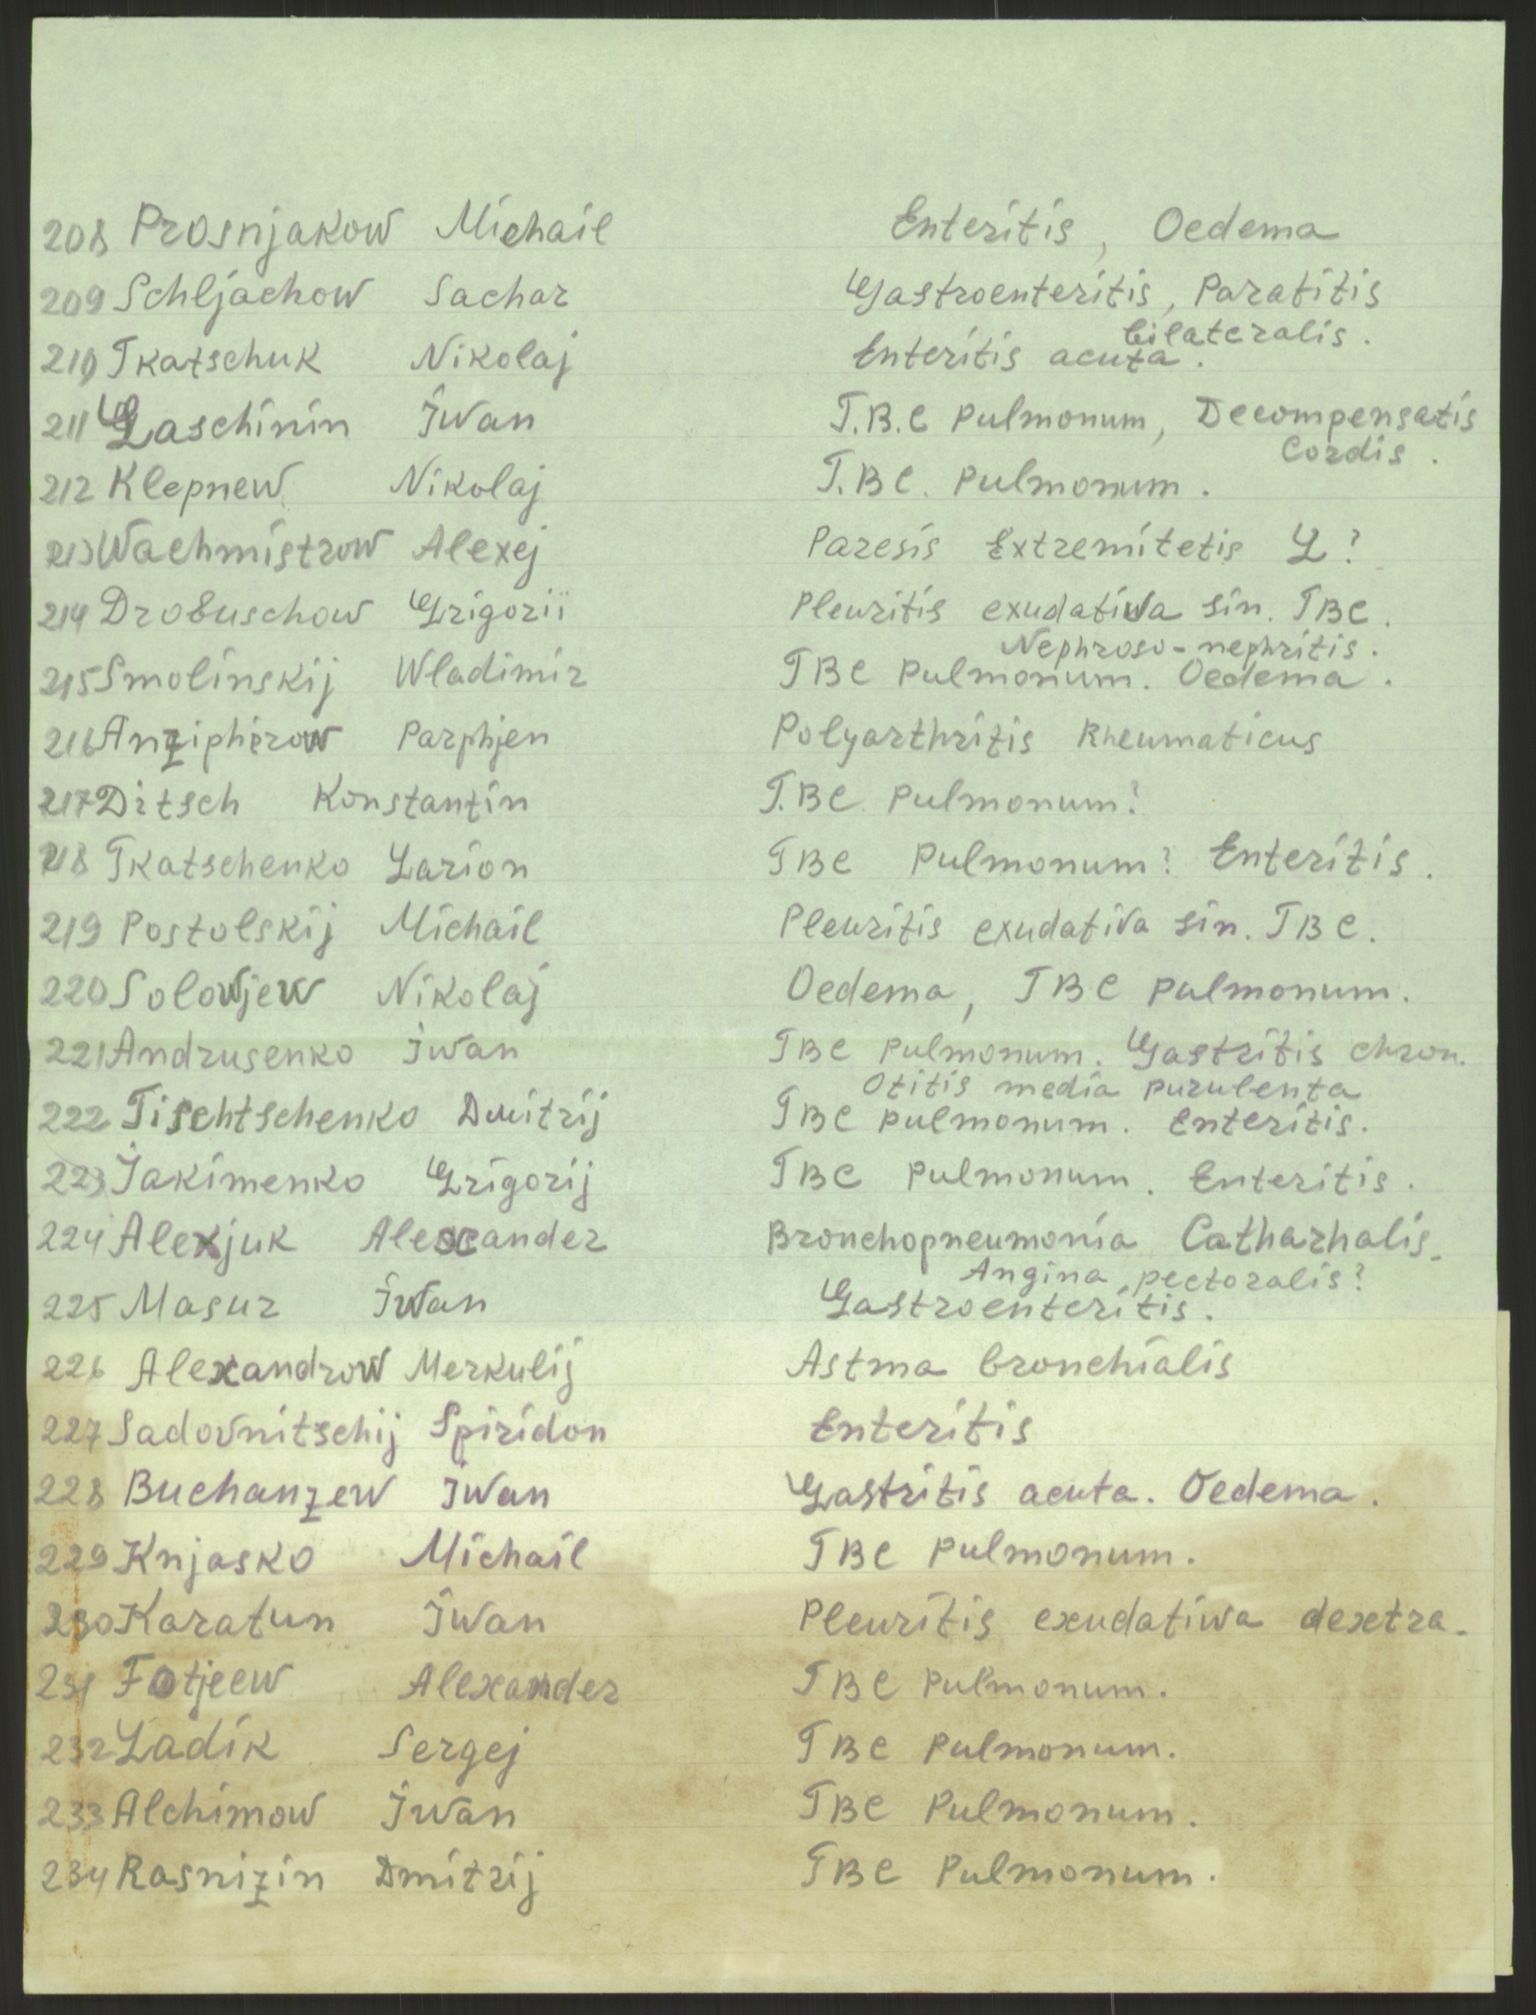 208 Prosnjakow Michail Enteritis, Oedema
209 Schljachow Sachar Gastroenteritis, Paratitis
bilateralis.
210 Tkatschuk Nikolaj Enteritis acuta.
211 Laschinin Iwan T.B.C pulmonum, Decompensatis
Cordis.
212 Klepnew Nikolaj T.BC. pulmonum.
213 Wachmistrow Alexej Paresis Extremitetis L?
214 Drobuschow Grigorii Pleuritis exudatiwa sin. TBC.
Nephroso-nephritis.
215 Smolinskij Wladimir TBC pulmonum. Oedema.
216 Anzipherow Parphjen Polyarthritis Rheumaticus
217 Ditsch Konstantin T.BC. pulmonum?
218 Tkatschenko Larion TBC pulmonum? Enteritis.
219 Postolskij Michail Pleuritis exudativa sin. TBC.
220 Solowjew Nikolaj Oedema, TBC pulmonum.
221 Andrusenko Iwan TBC pulmonum. Gastritis chron.
Otitis media purulenta
222 Tischtschenko Dmitrij TBC pulmonum. Enteritis.
223 Jakimenko Grigorij TBC pulmonum. Enteritis.
224 Alexjuk Alexander Bronchopneumonia Catharhalis.
Angina pectoralis?
225 Masur Iwan Gastroenteritis.
226 Alexandrow Merkulij Astma bronchialis
227 Sadovnitschij Spiridon Enteritis
228 Buchanzew Iwan Gastritis acuta. Oedema.
229 Knjasko Michail TBC pulmonum.
230 Karatun Iwan Pleuritis exudatiwa dextra.
231 Fotjeew Alexander TBC pulmonum.
232 Ladik Sergej TBC pulmonum.
233 Alchimow Iwan TBC pulmonum.
234 Rasnizin Dmitrij TBC Pulmonum.